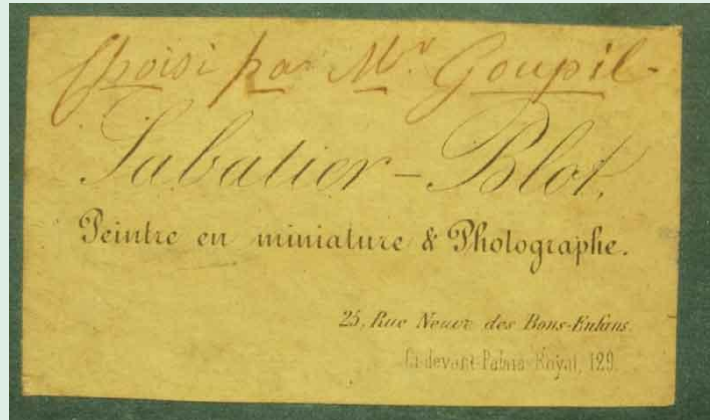 Choisi par Mr. Goupil-
Sabatier-Blot.
Peintre en miniature & Photographe.
25, Rue Neuve des Bons-Enfans.
Ci-devant Palais-Royal, 129.